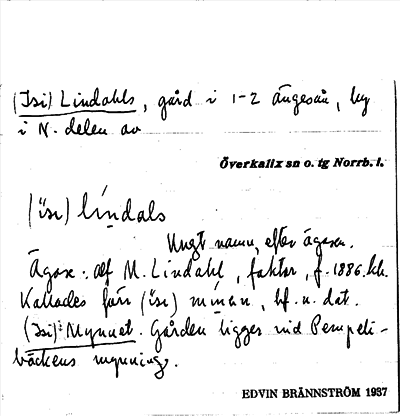 (Isi) Lindahls, gård i 1-2 Ängeså, by
i N. delen av
Överkalix sn o. tg Norrb. l.
(isi) líndals
Ungt namn, efter ägaren.
Ägare: Alf M. Lindahl, faktor, f. 1886.
Kallades förr (isi) mínən, bf. n. dat.
(Isi) Mynnet. Gården ligger vid Pempeli-
bäckens mynning.
EDVIN BRÄNNSTRÖM 1937